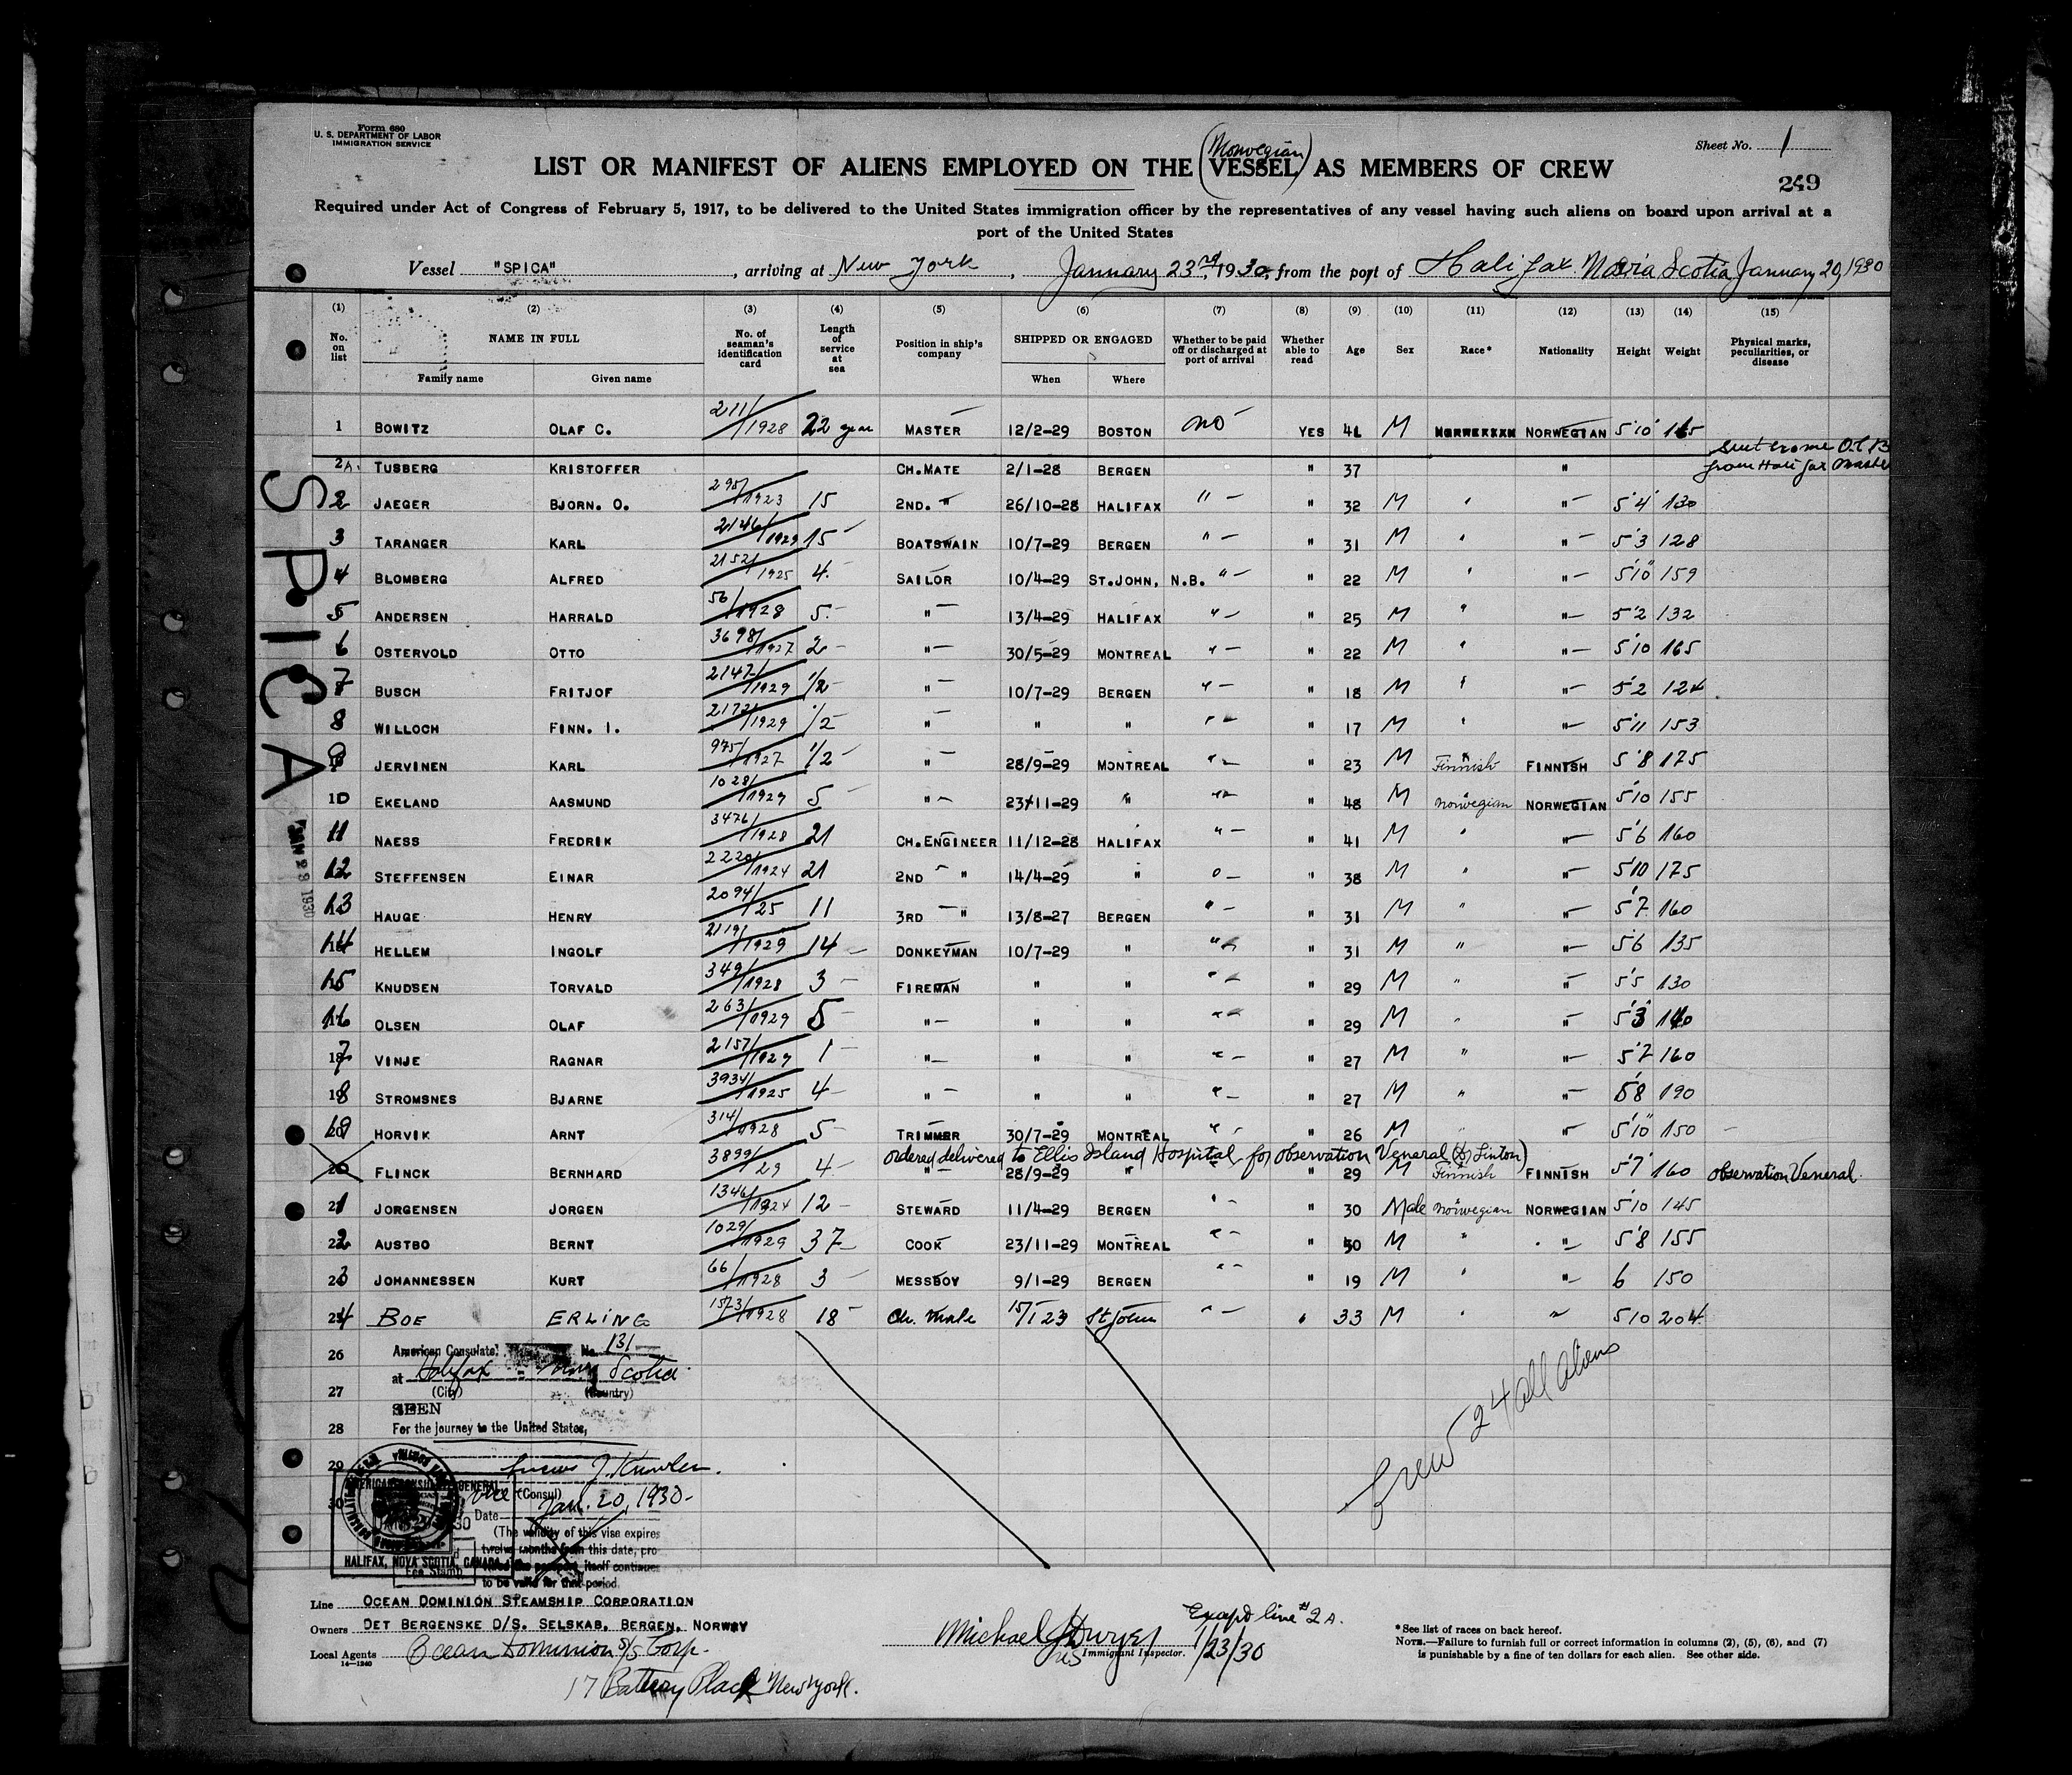 Form 680
U. S. DEPARTMENT OF LABOR
IMMIGRATION SERVICE
Sheet No. 1
249
LIST OR MANIFEST OF ALIENS EMPLOYED ON THE (Norwegian) VESSEL AS MEMBERS OF CREW
Required under Act of Congress of February 5, 1917, to be delivered to the United States immigration officer by the representatives of any vessel having such aliens on board upon arrival at a
port of the United States
Vessel "SPICA", arriving at New York, January 23rd, 1930, from the port of Halifax Novia Scotia January 20, 1930
(1) (2) (3) (4) (5) (6) (7) (8) (9) (10) (11) (12) (13) (14) (15)
No. on list NAME IN FULL Family name Given name No. of seaman's identification card Length of service at sea Position in ship's company SHIPPED OR ENGAGED When Where Whether to be paid off or discharged at port of arrival Whether able to read Age Sex Race* Nationality Height Weight Physical marks, peculiarities, or disease
1 BOWITZ OLAF C. 211/1928 22 year MASTER 12/2-29 BOSTON NO YES 41 M NORWEGIAN 5'10
2A. TUSBERG KRISTOFFER CH.MATE 2/1-28 BERGEN " 37 " sent home O.C.B from Halifax Master
2 JAEGER BJORN. O. 295/1923 15 2ND. " 26/10-28 HALIFAX " " 32 M " " 5'4 130
3 TARANGER KARL 2146/1929 15 BOATSWAIN 10/7-29 BERGEN " " 31 M " " 5'3 128
4 BLOMBERG ALFRED 2152/1925 4 SAILOR 10/4-29 ST.JOHN, N.B. " " 22 M " " 5'10" 159
5 ANDERSEN HARRALD 56/1928 5 " 13/4-29 HALIFAX " " 25 M " " 5'2 132
6 OSTERVOLD OTTO 3698/1927 2 " 30/5-29 MONTREAL " " 22 M " " 5'10 165
7 BUSCH FRITJOF 2147/1929 1/2 " 10/7-29 BERGEN " " 18 M " " 5'2 124
8 WILLOCH FINN. I. 2172/1929 1/2 " " " " " 17 M " " 5'11 153
9 JERVINEN KARL 975/1927 1/2 " 28/9-29 MONTREAL " " 23 M Finnish FINNISH 5'8 175
10 EKELAND AASMUND 1028/1929 5 " 23/11-29 " " " 48 M Norwegian NORWEGIAN 5'10 155
11 NAESS FREDRIK 3476/1928 21 CH.ENGINEER 11/12-28 HALIFAX " " 41 M " " 5'6 160
12 STEFFENSEN EINAR 2220/1924 21 2ND " 14/4-29 " " " 38 M " " 5'10 175
13 HAUGE HENRY 2094/25 11 3RD " 13/8-27 BERGEN " " 31 M " " 5'7 160
14 HELLEM INGOLF 2119/1929 14 DONKEYMAN 10/7-29 " " " 31 M " " 5'6 135
15 KNUDSEN TORVALD 349/1928 3 FIREMAN " " " " 29 M " " 5'5 130
16 OLSEN OLAF 263/1929 5 " " " " " 29 M " " 5'3 140
17 VINJE RAGNAR 2157/1929 1 " " " " " 27 M " " 5'7 160
18 STROMSNES BJARNE 3934/1925 4 " " " " " 27 M " " 5'8 190
19 HORVIK ARNT 314/1928 5 TRIMMER 30/7-29 MONTREAL " " 26 M " " 5'10" 150
ordered delivered to Ellis Island Hospital for observation Veneral (Dr Linton)
20 FLINCK BERNHARD 3899/29 4 " 28/9-29 " " " 29 M Finnish FINNISH 5'7 160 observation Veneral.
21 JORGENSEN JORGEN 1346/1924 12 STEWARD 11/4-29 BERGEN " " 30 Male Norwegian NORWEGIAN 5'10 145
22 AUSTBO BERNT 1029/1929 37 COOK 23/11-29 MONTREAL " " 50 M " " 5'8 155
23 JOHANNESSEN KURT 66/1928 3 MESSBOY 9/1-29 BERGEN " " 19 M " " 6 150
24 BOE ERLING 1573/1928 18 Ch. Mate St John " " 33 M " " 5'10 204
SPICA
JAN 29 1930
26
27
28
29
30
American Consulate No. 131
at Halifax - Nova Scotia
(City) (Country)
SEEN
For the journey to the United States,
vice (Consul)
Date Jan. 20, 1930
(The validity of this vise expires
twelve months from this date, pro
itself continues
to be valid for that period
AMERICAN CONSULATE GENERAL
HALIFAX, NOVA SCOTIA, CANADA
Fee Stamp
Crew 24 all aliens
Line OCEAN DOMINION STEAMSHIP CORPORATION
Owners DET BERGENSKE D/S. SELSKAB, BERGEN, NORWAY
Local Agents Ocean Dominion S/S Corp.
14—1240
17 Battery Place New York.
Michael J Dwyer
Immigrant Inspector.
1/23/30
Except line #2A.
*See list of races on back hereof.
NOTE.—Failure to furnish full or correct information in columns (2), (5), (6), and (7)
is punishable by a fine of ten dollars for each alien. See other side.